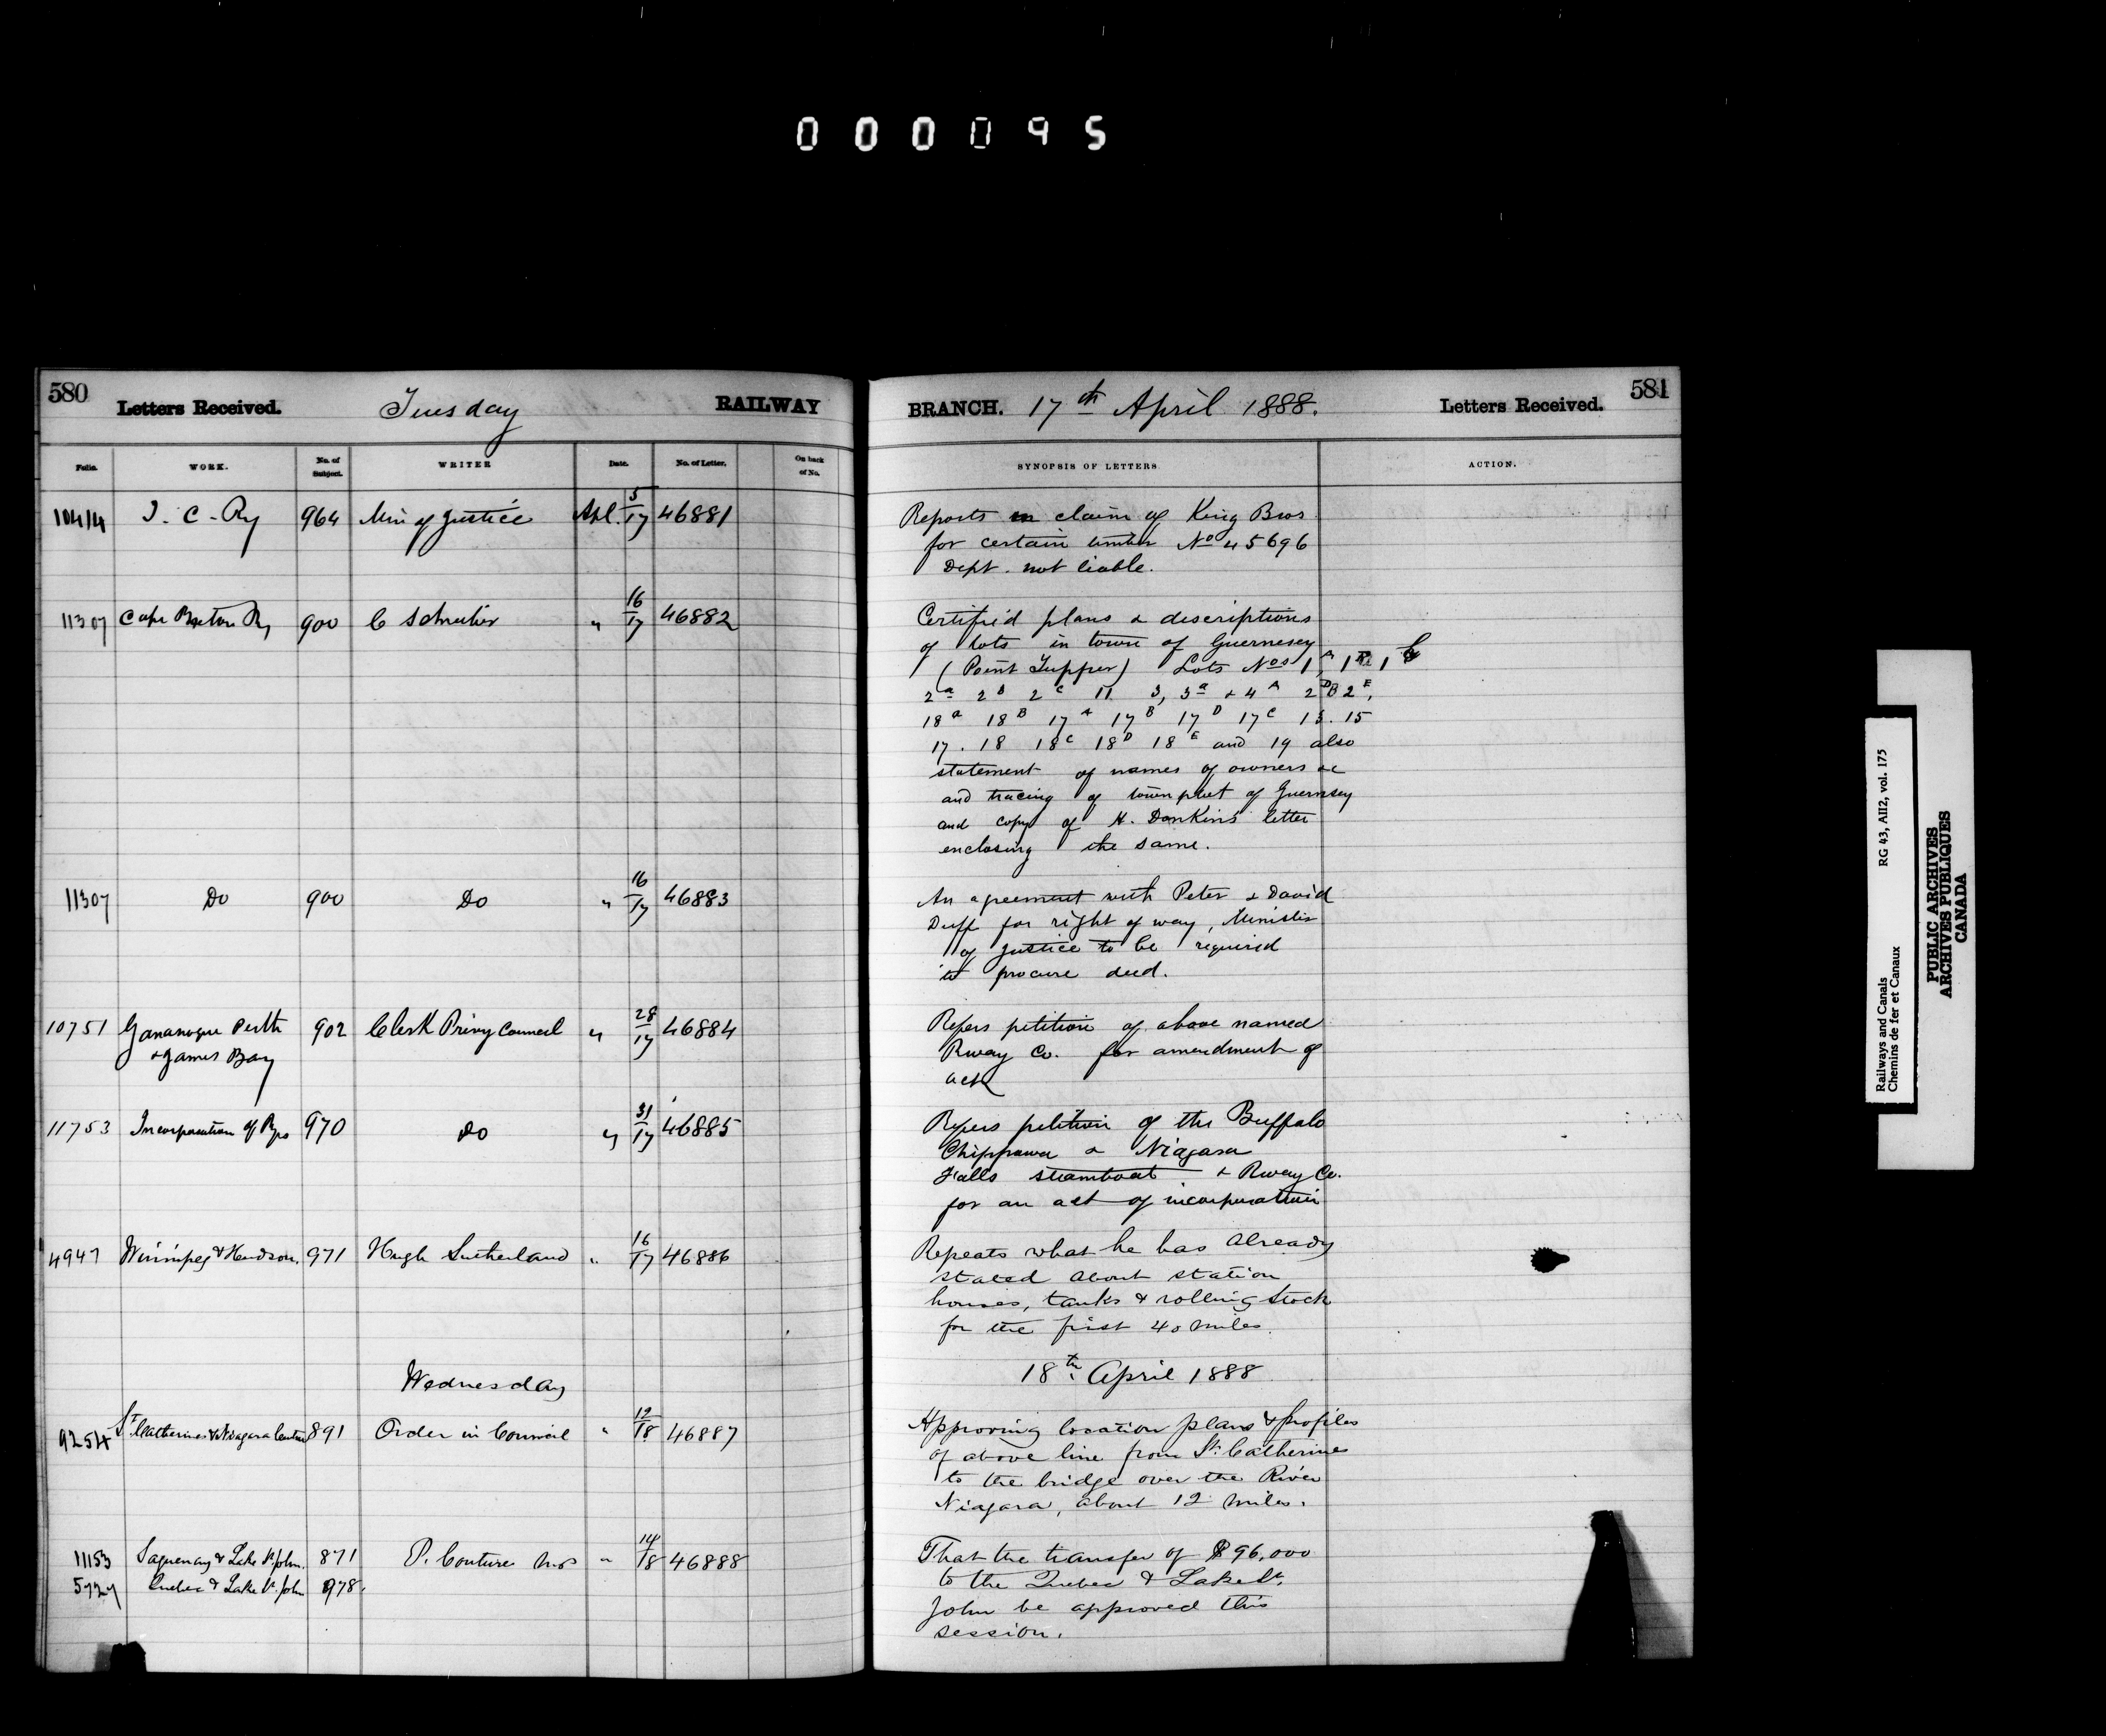 000095
580 Letters Received. Tuesday RAILWAY
BRANCH. 17th April 1888. Letters Received. 581
Folio. WORK. No. of Subject. WRITER Date. No. of Letter. On back of No.
SYNOPSIS OF LETTERS. ACTION.
10414 I. C. Ry 964 Min of Justice Apl. 5/17 46881
Reports on claim of King Bros
for certain timber No 45696
Dept. not liable.
11307 Cape Breton Ry 900 C Schreiber " 16/17 46882
Certified plans & descriptions
of lots in town of Guernesey
(Point Tupper) Lots Nos 1A, 1B, 1C
2a 2B 2C 11. 3, 3a & 4A 2D 2E,
18a 18B 17A 17B 17D 17C 13. 15
17. 18 18C 18D 18E and 19 also
statement of names of owners &c
and tracing of town plat of Guernsey
and copy of H. Donkins letter
enclosing the same.
11307 Do 900 Do " 16/17 46883
An agreement with Peter & David
Duff for right of way, Minister
of Justice to be required
to procure deed.
10751 Gananoque Perth 902 Clerk Privy Council " 28/17 46884
& James Bay
Refers petition of above named
Rway Co. for amendment of
act
11753 Incorporation of Rys 970 Do " 31/17 46885
Refers petition of the Buffalo
Chippawa & Niagara
Falls steamboat & Rway Co.
for an act of incorporation
4947 Winnipeg & Hudson. 971 Hugh Sutherland " 16/17 46886
Repeats what he has already
stated about station
houses, tanks & rolling stock
for the first 40 miles.
Wednesday 18th April 1888
9254 St. Catherines & Niagara Central 891 Order in Council " 12/18 46887
Approving location plans & profiles
of above line from St. Catherines
to the bridge over the River
Niagara, about 12 miles.
11153 Saguenay & Lake St. John. 871 P. Couture " 14/18 46888
5727 Quebec & Lake St. John 978.
That the transfer of $96,000
to the Quebec & Lake St.
John be approved this
session.
Railways and Canals RG 43, AII2, vol. 175
Chemins de fer et Canaux
PUBLIC ARCHIVES
ARCHIVES PUBLIQUES
CANADA